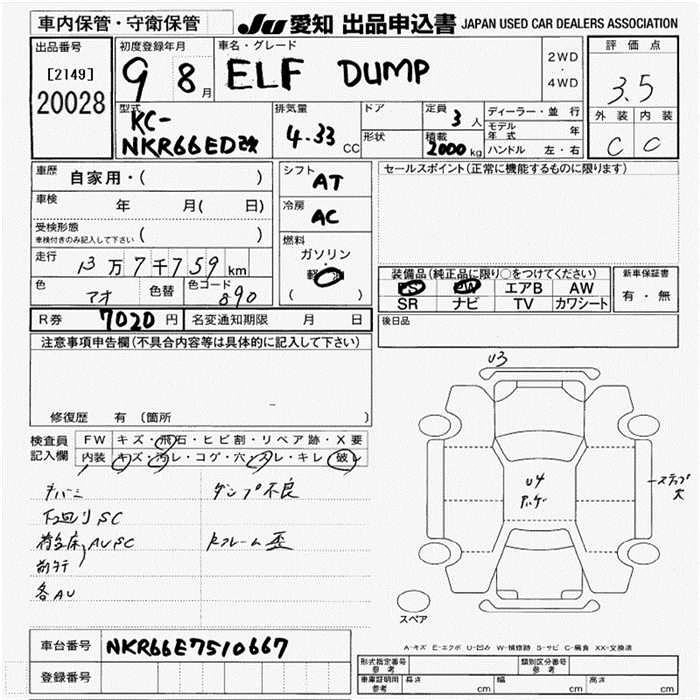 車内保管・守衛保管
JU 愛知 出品申込書 JAPAN USED CAR DEALERS ASSOCIATION
出品番号
[2149]
20028
初度登録年月
9 8月
車名・グレード
ELF DUMP
2WD
・
4WD
評価点
3.5
外装 内装
C C
型式
KC-
NKR66ED改
排気量
4.33 CC
ドア
形状
定員 3 人
積載
2000 kg
ディーラー・並行
モデル年式 年
ハンドル 左・右
車歴
自家用・( )
車検 年 月( 日)
受検形態
車検付きのみ記入して下さい ( )
走行 13万7千759km
色 アオ 色替 色コード 890
シフト
AT
冷房
AC
燃料
ガソリン
・
軽油
( )
セールスポイント(正常に機能するものに限ります)
装備品(純正品に限り○をつけてください)
PS PW エアB AW
SR ナビ TV カワシート
新車保証書
有・無
R券 7020円 名変通知期限 月 日
後日品
注意事項申告欄(不具合内容等は具体的に記入して下さい)
修復歴 有(箇所 )
検査員
記入欄
FW キズ・飛石・ヒビ割・リペア跡・X要
内装 キズ・汚レ・コゲ・穴・スレ・キレ・破レ
ダンプ不良
下回りSC
荷台床AUSC
フレーム歪
各AU
U3
U4
ステップ
穴
スペア
A-キズ E-エクボ U-凹み W-補修跡 S-サビ C-腐食 XX-交換済
車台番号 NKR66E7510667
登録番号
形式指定番号
参考
類別区分番号
参考
車庫証明用
参考
長さ cm 幅 cm 高さ cm